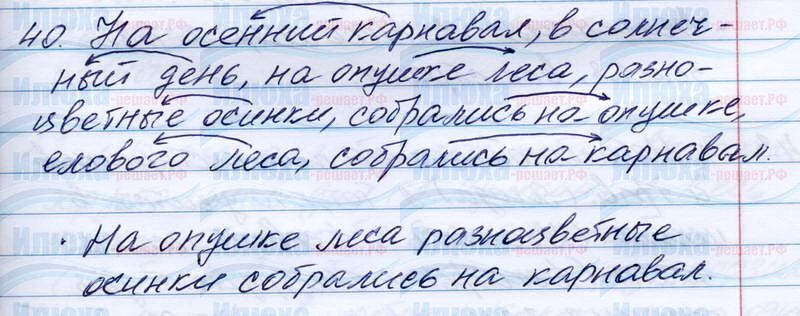 40. На осенний карнавал, в солнеч-
ный день, на опушке леса, разно-
цветные осинки, собрались на опушке,
елового леса, собрались на карнавал.
На опушке леса разноцветные
осинки собрались на карнавал.